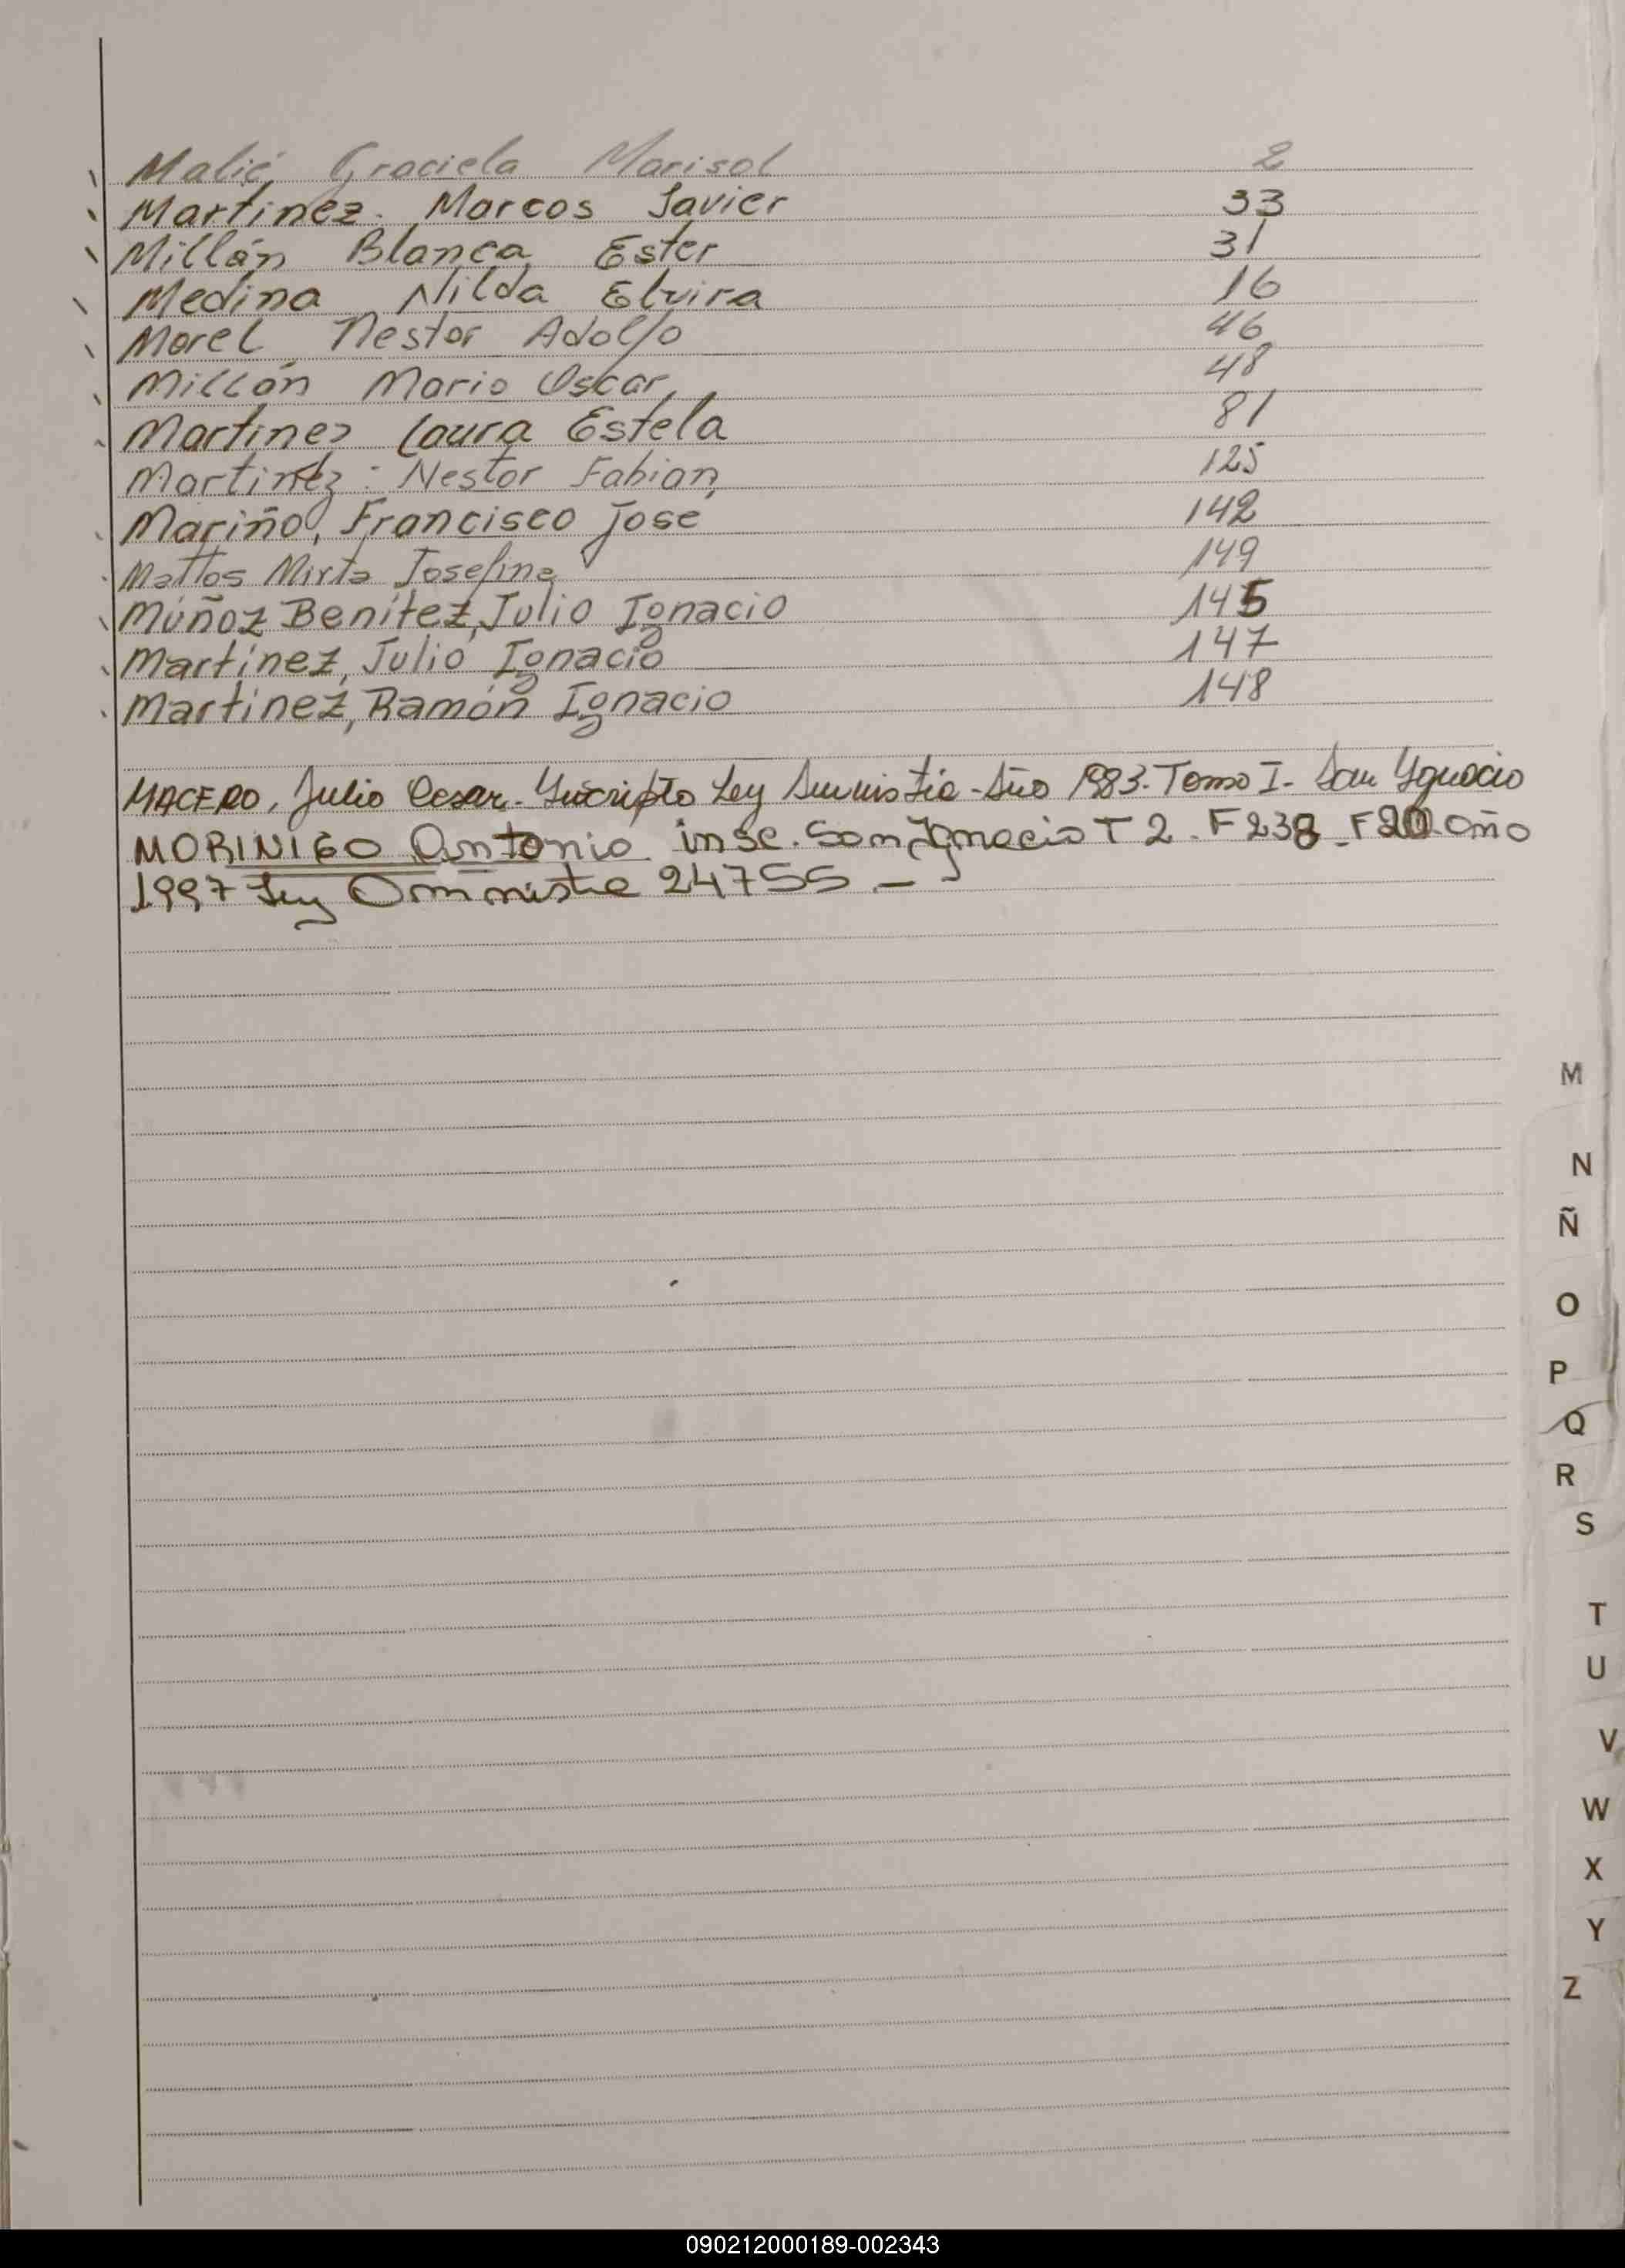 Malić, Graciela Marisol 2
Martinez. Marcos Javier 33
Millán Blanca Ester 31
Medina Nilda Elvira 16
Morel Nestor Adolfo 46
Millán Mario Oscar 48
Martinez Laura Estela 81
Martinez: Nestor Fabian 125
Mariño, Francisco Jose 142
Mattos Mirta Josefina 149
Múñoz Benítez, Julio Ignacio 145
Martínez, Julio Ignacio 147
Martínez, Ramón Ignacio 148
MACERO, Julio Cesar. Inscripto Ley Amnistia - Año 1983. Tomo I - San Ygnacio
MORINIGO Antonio insc. San Ignacio T 2. F 238 - año
1997 Ley Omnistia 24755 -
M
N
Ñ
O
P
Q
R
S
T
U
V
W
X
Y
Z
090212000189-002343